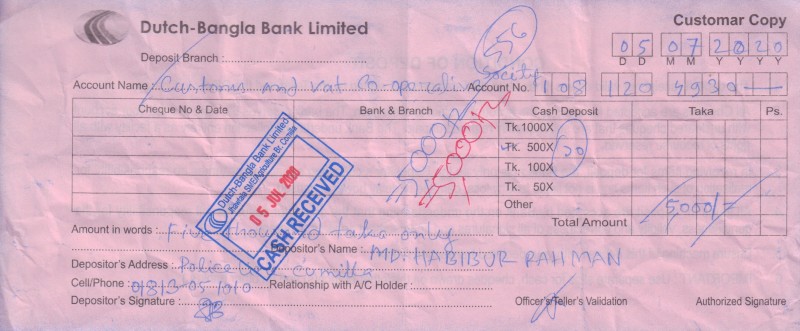 Dutch-Bangla Bank Limited
Customar Copy
556
Deposit Branch :
05 07 2020
D D M M Y Y Y Y
Account Name : Customs and vat Co-operative Socity Account No. 108 120 4939
Cheque No & Date Bank & Branch Cash Deposit Taka Ps.
Tk.1000X
Tk. 500X
Tk. 100X
Tk. 50X
Other
5000/=
5000/=
Total Amount 5,000/=
Dutch-Bangla Bank Limited
05 JUL 2020
CASH RECEIVED
Amount in words : Five thousand taka only
Depositor's Name : MD. HABIBUR RAHMAN
Depositor's Address : Police Comilla
Cell/Phone : Relationship with A/C Holder :
Depositor's Signature :
Officer's/Teller's Validation
Authorized Signature